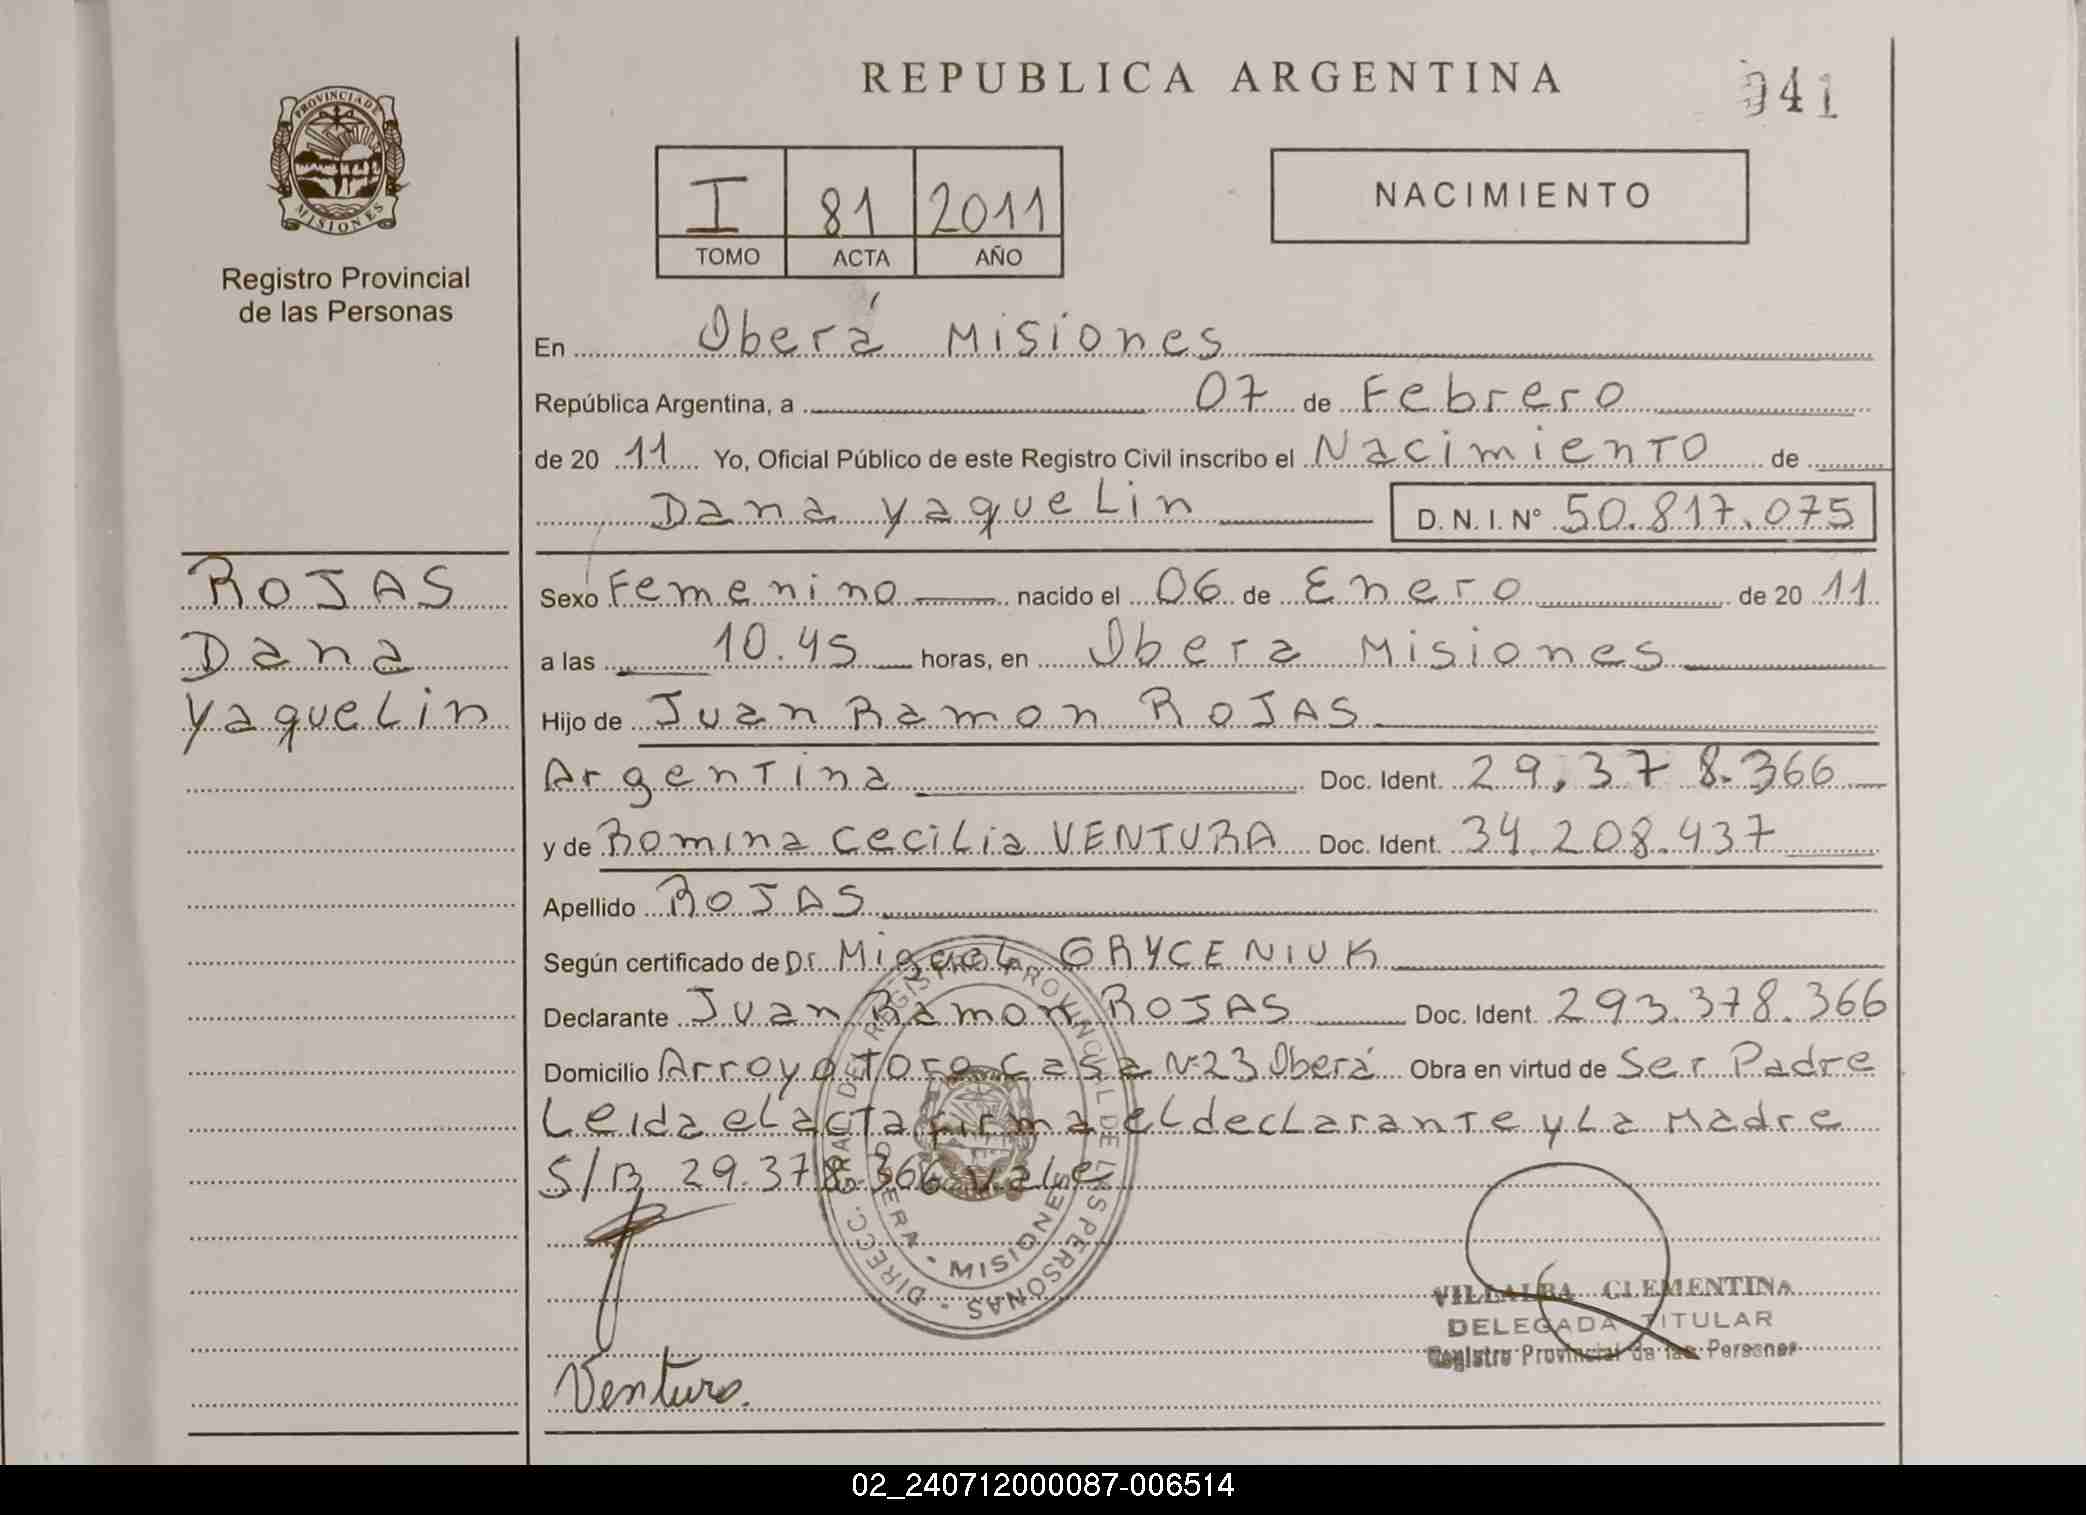 REPUBLICA ARGENTINA
941
PROVINCIA DE
MISIONES
Registro Provincial
de las Personas
I 81 2011
TOMO ACTA AÑO
NACIMIENTO
En Oberá Misiones
República Argentina, a 07 de Febrero
de 20 11 Yo, Oficial Público de este Registro Civil inscribo el Nacimiento de
Dana Yaquelin D.N.I. Nº 50.817.075
ROJAS
Dana
Yaquelin
Sexo Femenino nacido el 06 de Enero de 20 11
a las 10.45 horas, en Obera Misiones
Hijo de Juan Ramon ROJAS
Argentina Doc. Ident. 29.378.366
y de Romina Cecilia VENTURA Doc. Ident. 34.208.437
Apellido ROJAS
Según certificado de Dr. Miguel GRYCENIUK
Declarante Juan Ramon ROJAS Doc. Ident. 293.378.366
Domicilio Arroyo Toro Casa Nº 23 Oberá Obra en virtud de Ser Padre
Leida el acta firma el declarante y la Madre
S/B 29.378.366 vale
DIRECC. GRAL. DEL REGISTRO PROVINCIAL DE LAS PERSONAS
OBERA - MISIONES
VILLALBA CLEMENTINA
DELEGADA TITULAR
Registro Provincial de las Personas
Ventura.
02_240712000087-006514